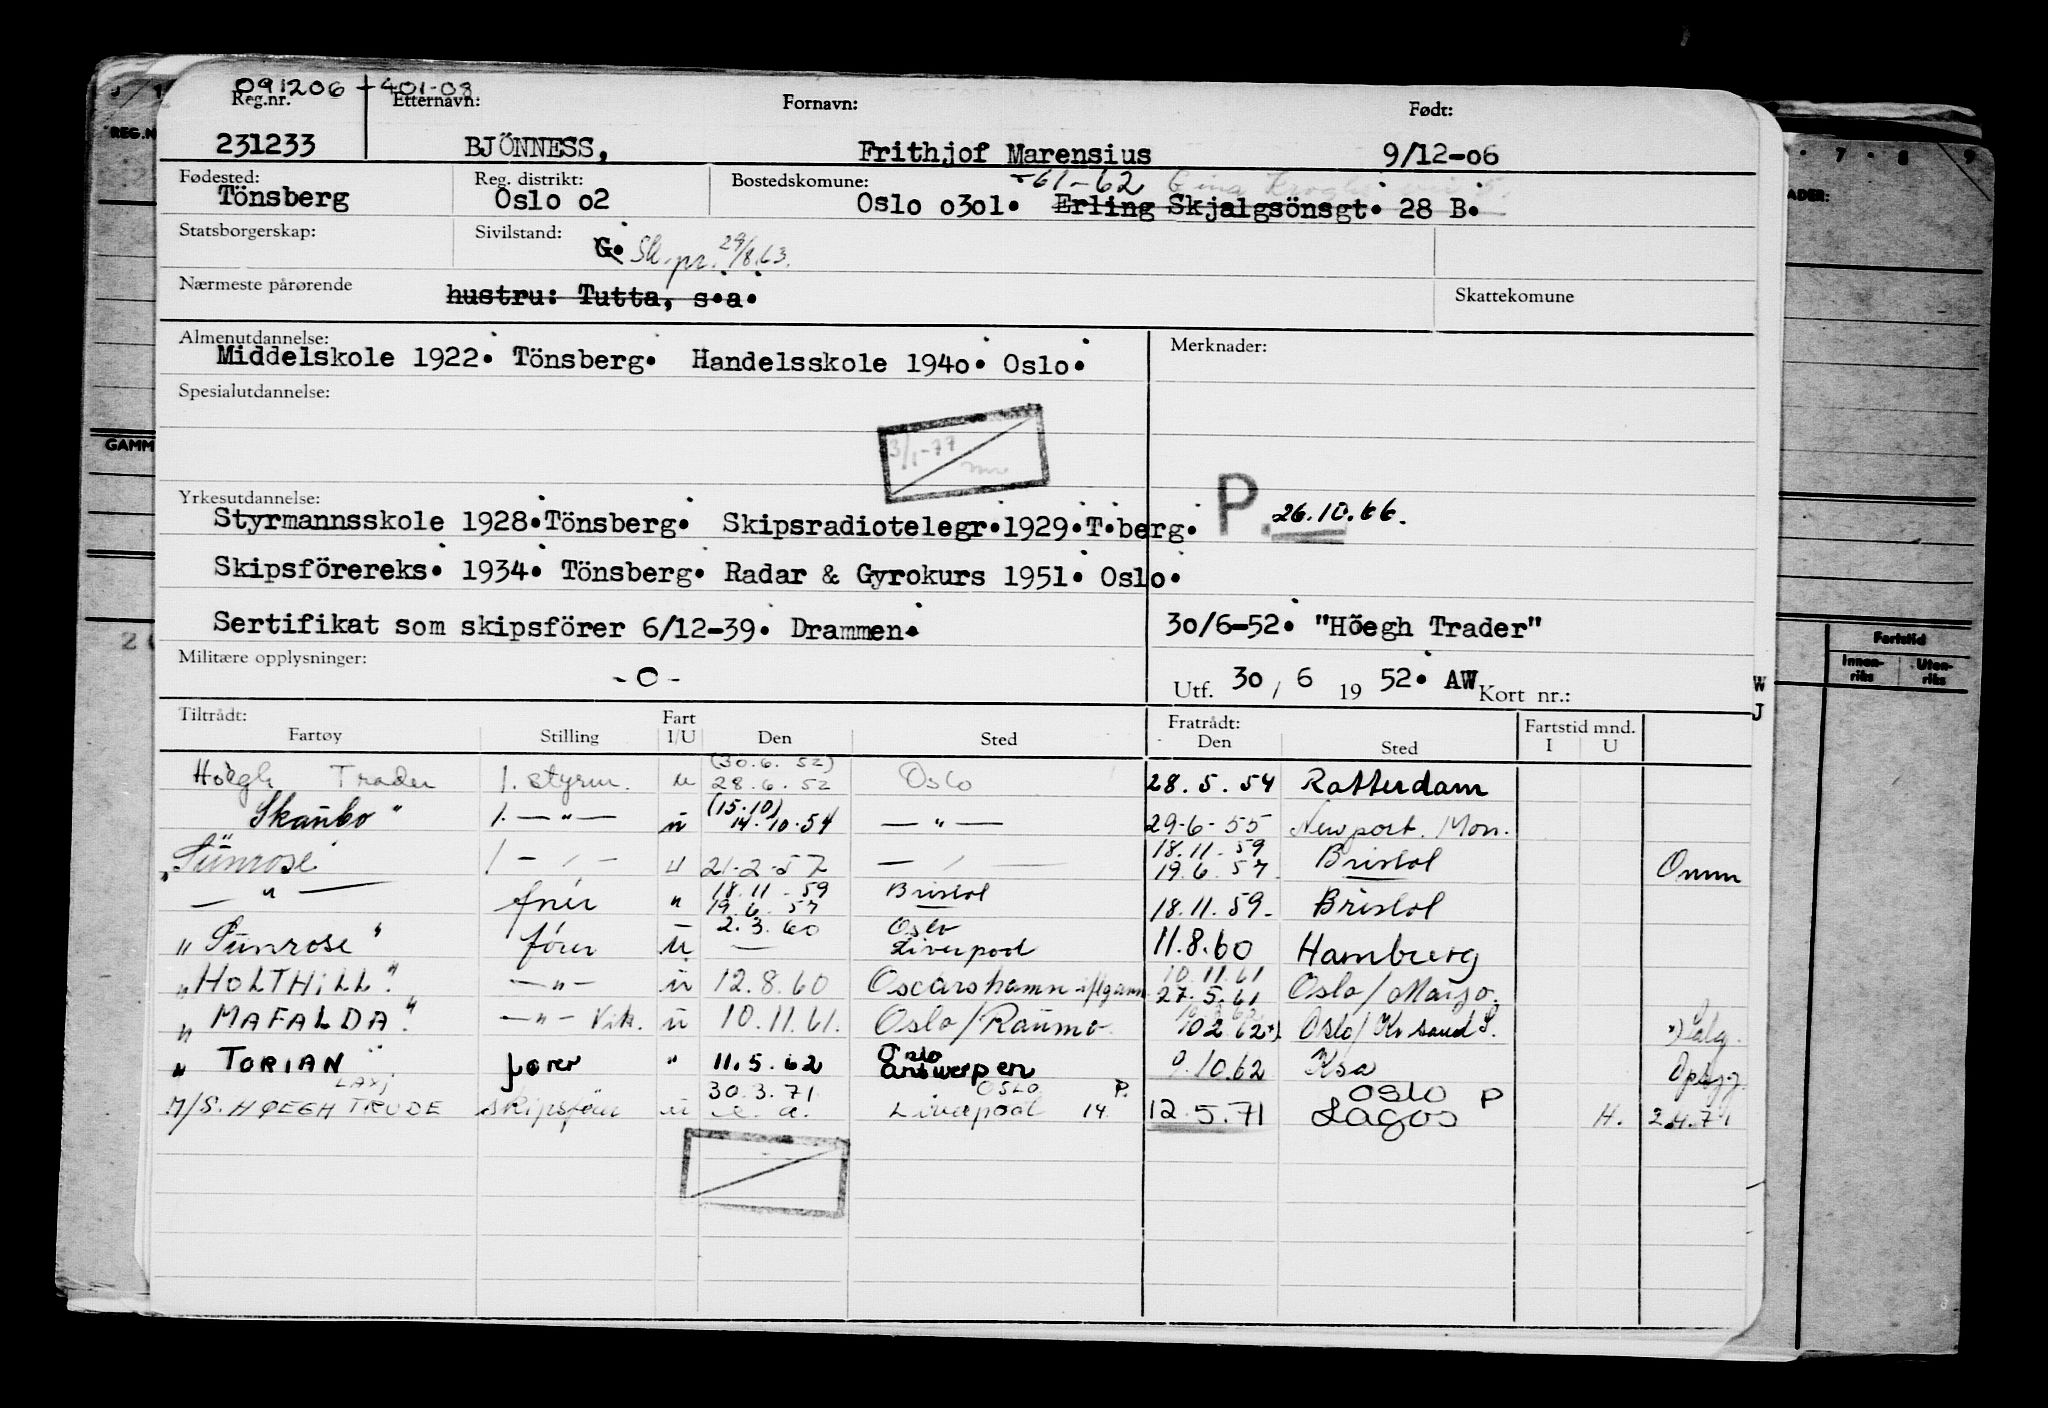 091206 + 401-08
Reg.nr. Etternavn: Fornavn: Født:
231233 BJÖNNESS, Frithjof Marensius 9/12-o6
Fødested: Reg. distrikt: Bostedskomune: -61-62 Gina
Tönsberg Oslo o2 Oslo o3o1. Erling Skjalgsönsgt. 28 B.
Statsborgerskap: Sivilstand: G. Sk. pr. 29/8.63.
Nærmeste pårørende hustru: Tutta, s.a. Skattekomune
Almenutdannelse: Merknader:
Middelskole 1922. Tönsberg. Handelsskole 194o. Oslo.
Spesialutdannelse:
3/1-77
Yrkesutdannelse:
Styrmannsskole 1928.Tönsberg. Skipsradiotelegr.1929.T.berg. P. 26.10.66.
Skipsförereks. 1934. Tönsberg. Radar & Gyrokurs 1951. Oslo.
Sertifikat som skipsförer 6/12-39. Drammen. 30/6-52. "Höegh Trader"
Militære opplysninger: -O- Utf. 30 / 6 19 52. AW Kort nr.:
W
J
Tiltrådt: Fart Fratrådt: Fartstid mnd.
Fartøy Stilling I/U Den Sted Den Sted I U
(30.6.52)
Höegh Trader 1. styrm. u 28.6.52 Oslo 28.5.54 Rotterdam
(15.10)
Skaubo" 1. — " — u 14.10.54 — " — 29-6-55 Newport. Mon.
18.11.59
"Sunrose 1 — " — u 21-2-57 — " — 19.6.57 Bristol
18.11-59 Bristol
— " — " 19.6.57 18.11.59- Bristol
2.3.60 Oslo
"Sunrose" fører u — Liverpool 11.8.60 Hamburg
10.11.61
"HOLTHILL". — " — u 12.8.60 Oscarshamn 27.5.61 Oslo/
"MAFALDA". — " — Vik. u 10.11.61. Oslo/Raumo 10 2 62 x) Oslo/Kr sand S. x)
Oslo
"TORIAN" fører " 11.5.62 Antwerpen 9.10.62 Ksa Oppsg.
30.3.71 OSLO P. OSLO P
M/S. HØEGH TRUDE skipsfører u Liverpool 14. 12.5.71 Lagos H. 2.4.71
REG.N
GAMM
ADER:
7 8 9
Fartstid
Innen-riks Uten-riks